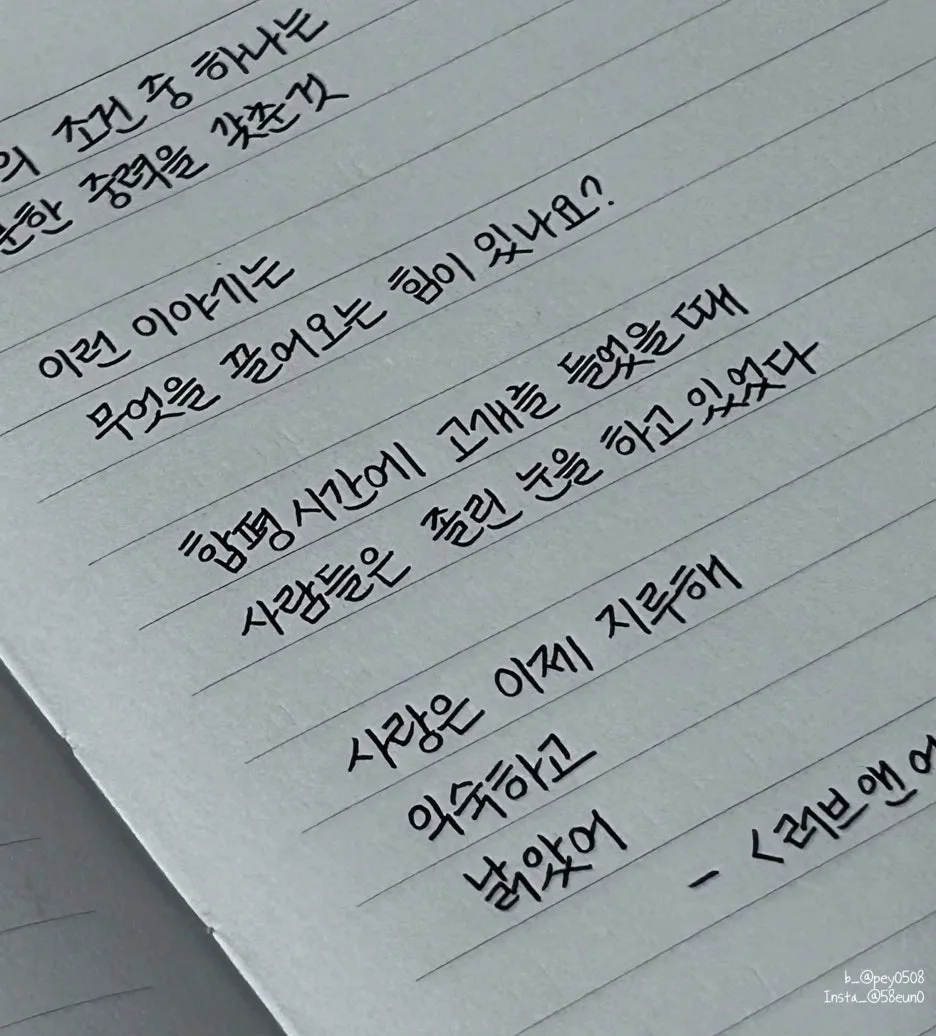 의 조건 중 하나는
분한 중력을 갖춘것
이런 이야기는
무엇을 끌어오는 힘이 있나요?
합평 시간에 고개를 들었을 때
사람들은 졸린 눈을 하고 있었다
사랑은 이제 지루해
익숙하고
낡았어
- <러브앤어
b_@pey0508
Insta_@58eun0